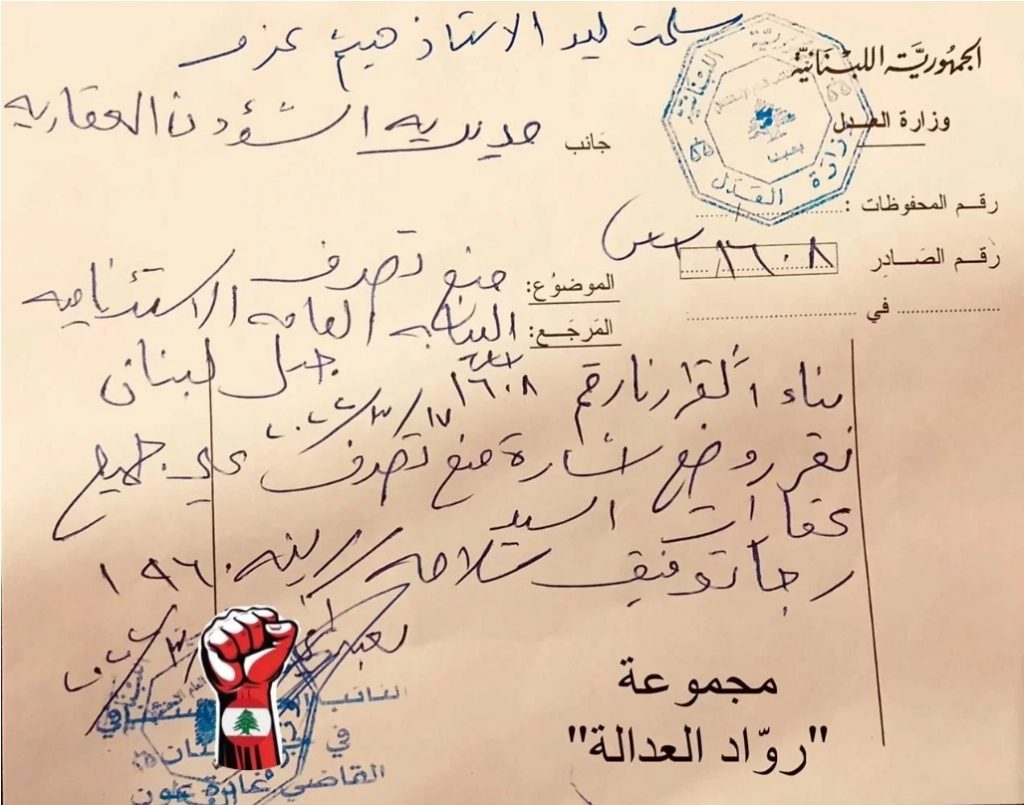 سلمت ليد الاستاذ هيثم عزو
الجمهورية اللبنانية
وزارة العدل
جَانب مديرية الشؤون العقارية
رقم المحفوظات :
رقم الصَادِر ١٦٠٨
في
الموضوُع: منع تصرف
المَرجَع: النيابة العامة الاستئنافية
جبل لبنان
بناء لقرارنا رقم ١٦٠٨ ١٧/٣/٢٠٢٢
نقرر وضع اشارة منع تصرف على جميع
عقارات السيد
رجا توفيق سلامه ١٩٦٠
بعبدا
النائب العام الاستئنافي
في جبل لبنان
القاضي غادة عون
وزارة العدل
مجموعة
"روّاد العدالة"